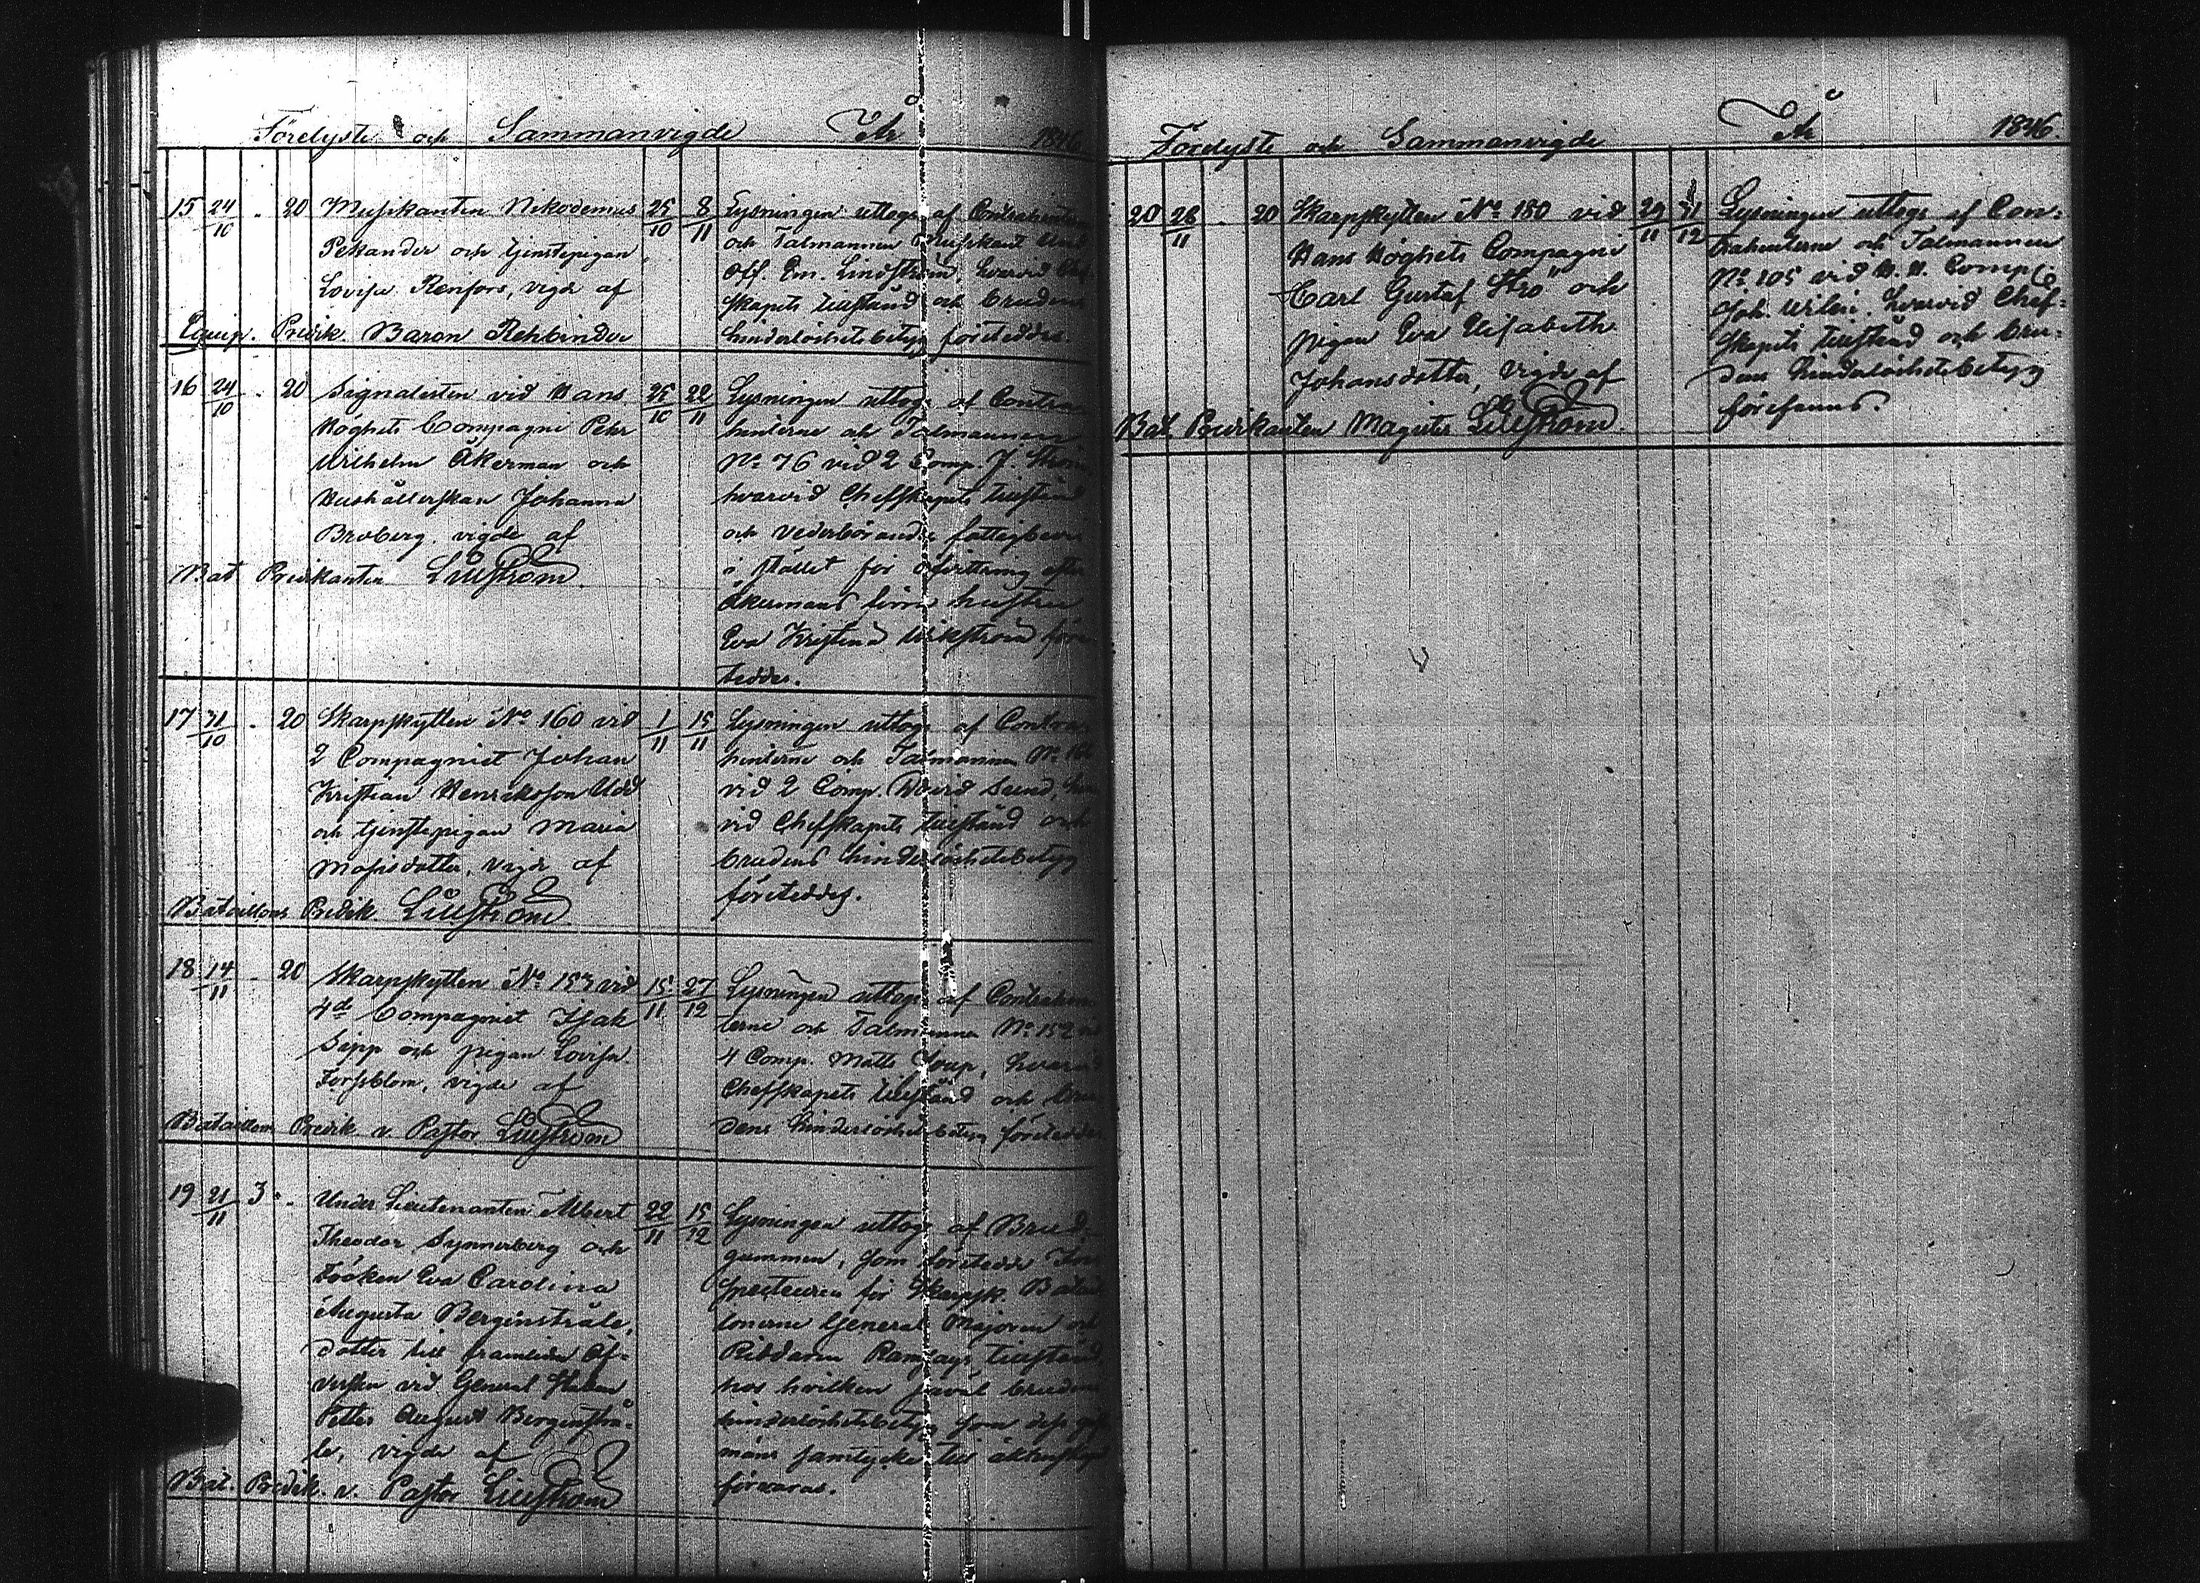 Förelyste och Sammanvigde År 1846
15 24/10 . 20 Musikanten Nikodemus 25/10 8/11
Pekander och tjenstepigan
Lovisa Renfors, vigde af
Equip. Predik. Baron Rehbinder
Lysningen uttogs af Contrahenterne
och Talmannen Musikant Und.
Off. Em. Lindström, hvarvid Chef-
skapets tillstånd och brudens
hinderlöshetsbetyg företeddes.
16 24/10 . 20 Signalisten vid Hans 25/10 22/11
Höghets Compagni Pehr
Wilhelm Åkerman och
Hushållerskan Johanna
Broberg, vigde af
Bat Predikanten Lillström
Lysningen uttogs af Contra-
henterne och Talmannen
No 76 vid 2 Comp. J.
hvarvid Chefskapets tillstånd
och vederbörande fattigbevis
i stället för afvittring efter
Åkermans förra hustru
Eva Kristina Wikström före-
teddes.
17 31/10 . 20 Skarpskytten No 160 vid 1/11 15/11
2 Compagniet Johan
Kristian Henriksson Udd
och tjenstepigan Maria
Matsdotter, vigde af
Bataillons Predik Lillström
Lysningen uttogs af Contra-
henterne och Talmannen No
vid 2 Comp. David Sund, hvar-
vid Chefskapets tillstånd och
brudens hinderlöshetsbetyg
företeddes.
18 14/11 . 20 Skarpskytten No 153 vid 15/11 27/12
4de Compagniet Isak
Sipp och pigan Lovisa
Forsblom, vigde af
Bataillons Predik. v. Pastor Lillström
Lysningen uttogs af Contrahen-
terne och Talmannen No 152 vid
4 Comp. Matts hvarvid
Chefskapets tillstånd och bru-
dens hinderlöshetsbetyg företeddes
19 21/11 3 . . Under Lieutenanten Albert 22/11 15/12
Theodor Synnerberg och
Fröken Eva Carolina
Augusta Bergenstråle,
dotter till framlidne Öf-
versten vid General Staben
Petter August Bergenstrå-
le, vigde af
Bat. Predik. v. Pastor Lillström
Lysningen uttogs af Brud-
gummen, som företedde In-
specteuren för Skarpsk. Batail-
lonerne General Majoren och
Riddaren Ramsays tillstånd,
hos hvilken jemväl brudens
hinderlöshetsbetyg som dess gift-
mans samtycke till äktenskapet
förvaras.
Förelyste och Sammanvigde År 1846.
20 28/11 . 20 Skarpskytten No 180 vid 29/11 31/12
Hans Höghets Compagni
Carl Gustaf Strö och
pigan Eva Elisabeth
Johansdotter, vigde af
Bat. Predikanten Magister Lillström
Lysningen uttogs af Con-
trahenterne och Talmannen
No 105 vid H. H. Comp.
Joh. Wilén, hvarvid Chef-
skapets tillstånd och bru-
dens hinderlöshetsbetyg
förefanns.